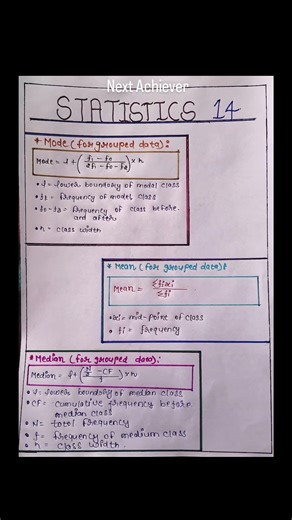 Next Achiever
STATISTICS 14
* Mode (for grouped data):
Mode = l + (f1 - f0 / 2f1 - f0 - f2) × h
• l = lower boundary of modal class
• f1 = frequency of model class
• f0 - f2 = frequency of class before
and after
• h = class width
* Mean (for grouped data):
Mean = Σfixi / Σfi
• xi = mid-point of class
• fi = frequency
* Median (for grouped data):
Median = l + (N/2 - CF / f) × h
• l = lower boundary of median class
• CF = cumulative frequency before
median class
• N = total frequency
• f = frequency of medium class
• h = class width.